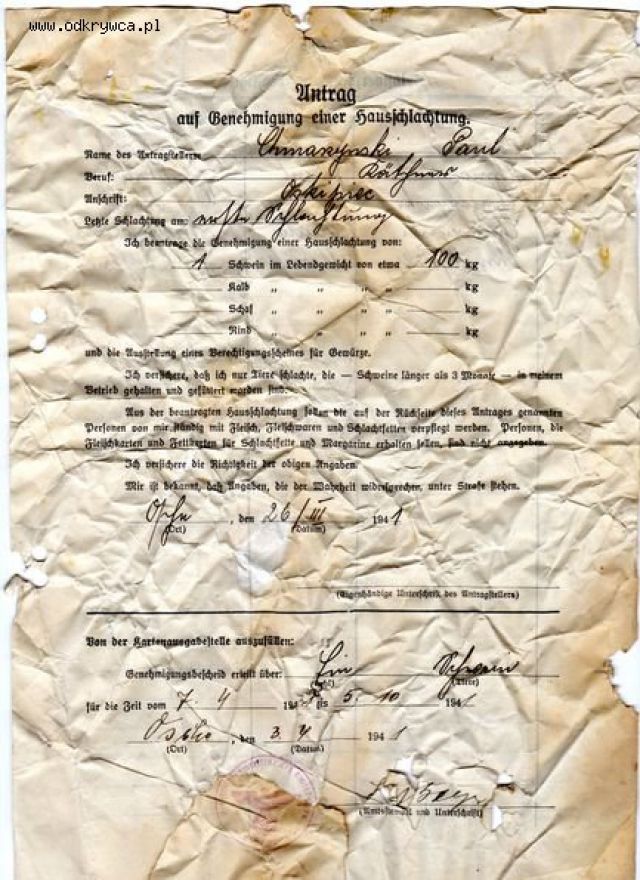 www.odkrywca.pl
Antrag
auf Genehmigung einer Hausschlachtung.
Name des Antragstellers: Chmarzynski Paul
Beruf: Käthner
Anschrift:
Letzte Schlachtung am: Schlachtung
Ich beantrage die Genehmigung einer Hausschlachtung von:
1 Schwein im Lebendgewicht von etwa 100 kg
Kalb „ „ „ „ kg
Schaf „ „ „ „ kg
Rind „ „ „ „ kg
und die Ausstellung eines Berechtigungsscheines für Gewürze.
Ich versichere, daß ich nur Tiere schlachte, die — Schweine länger als 3 Monate — in meinem
Betrieb gehalten und gefüttert worden sind.
Aus der beantragten Hausschlachtung sollen die auf der Rückseite dieses Antrages genannten
Personen von mir ständig mit Fleisch, Fleischwaren und Schlachtfetten verpflegt werden. Personen, die
Fleischkarten und Fettkarten für Schlachtfette und Margarine erhalten sollen, sind nicht angegeben.
Ich versichere die Richtigkeit der obigen Angaben.
Mir ist bekannt, daß Angaben, die der Wahrheit widersprechen, unter Strafe stehen.
, den 26/III 1941
(Ort) (Datum)
(Eigenhändige Unterschrift des Antragstellers)
Von der Kartenausgabestelle auszufüllen:
Genehmigungsbescheid erteilt über: Ein Schwein
(Zahl) (Tiere)
für die Zeit vom 7. 4 1941 bis 5. 10 1941
, den 3. 4 1941
(Ort) (Datum)
(Amtsstempel und Unterschrift)